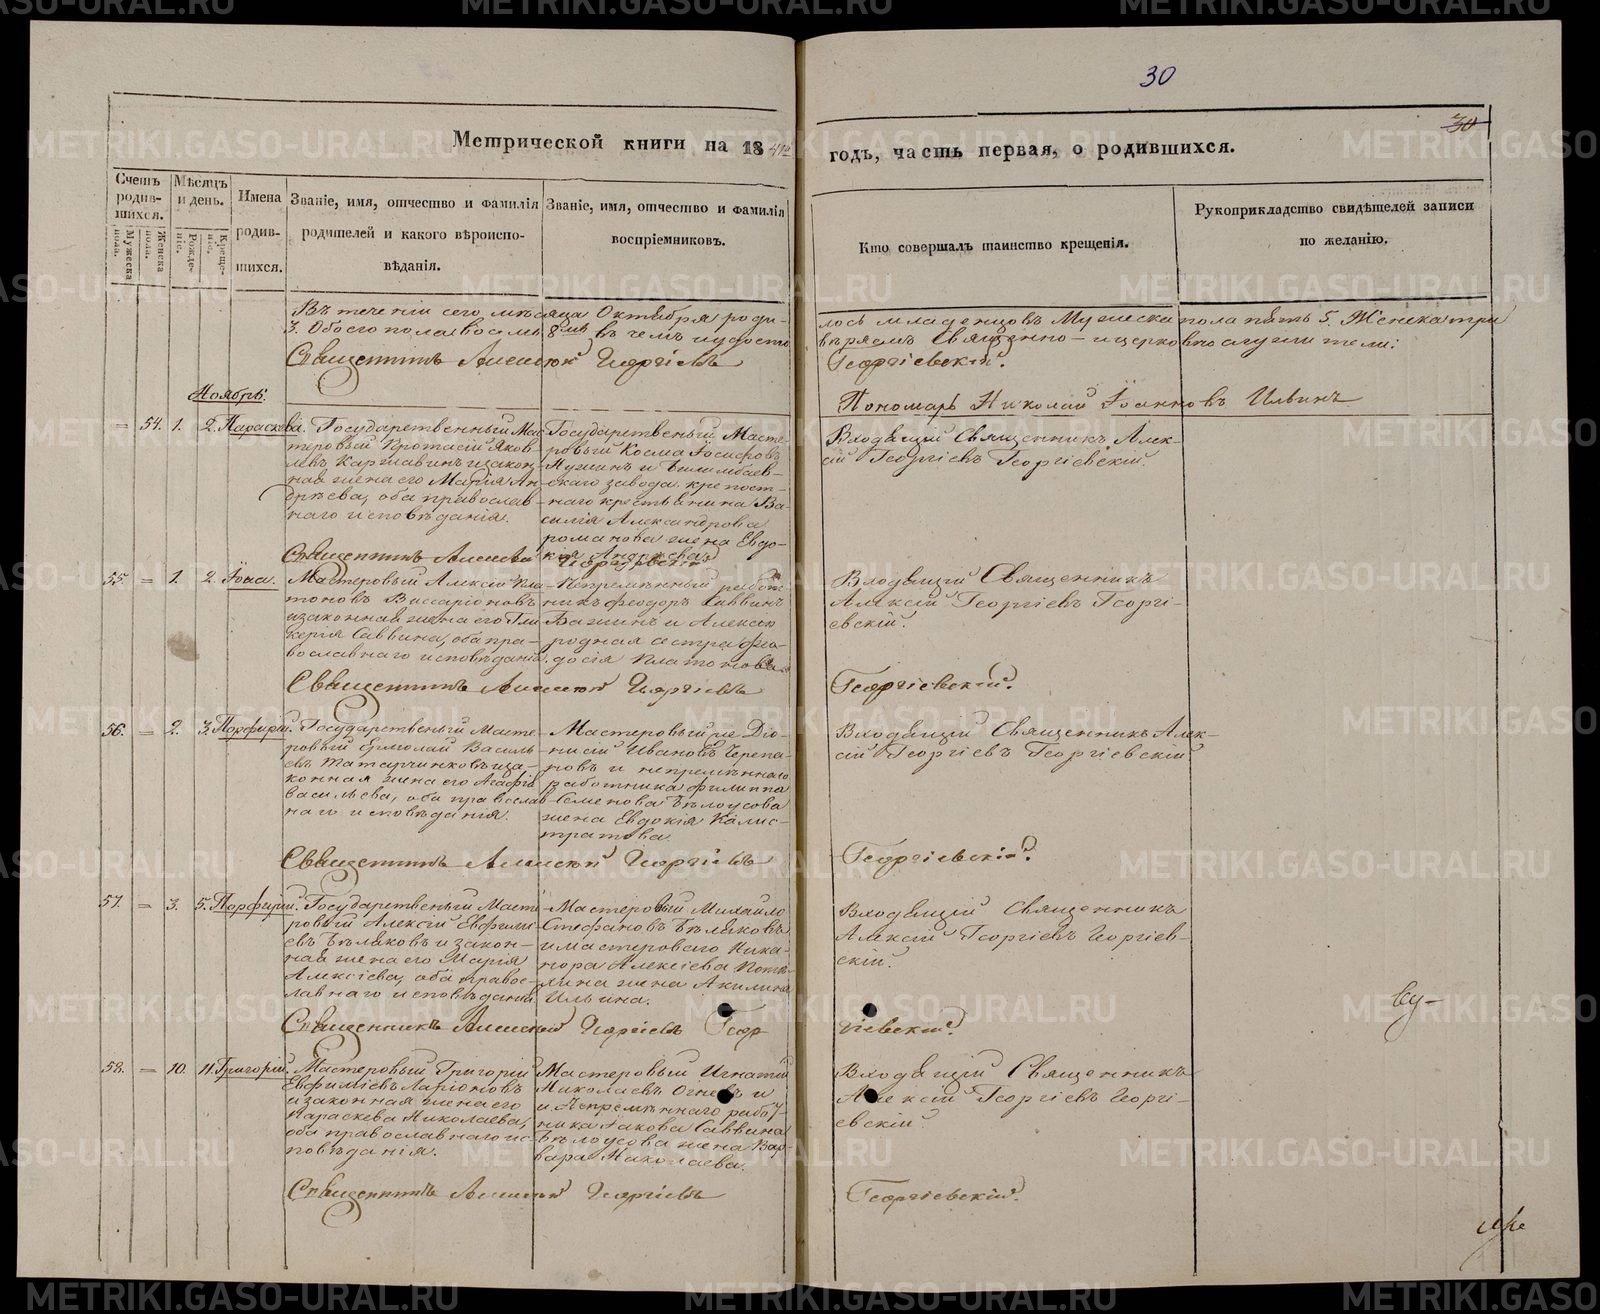 30
30
Метрической книги на 18
годъ, часть первая, о родившихся.
Счетъ родившихся.
Мужеска пола.
Женска пола.
Мѣсяцъ и день.
Рожденіе.
Крещеніе.
Имена
родив-
шихся.
Званіе, имя, отчество и фамилія
родителей и какого вѣроиспо-
вѣданія.
Званіе, имя, отчество и фамилія
воспріемниковъ.
Кто совершалъ таинство крещенія.
Рукоприкладство свидѣтелей записи
по желанію.
Въ теченіи сего мѣсяца Октября роди-
лось младенцовъ Мужеска пола пять 5. Женска три
3. Обоего пола восемь 8 въ чемъ и удосто
вѣряемъ Священно-и церковнослужители:
Священникъ Алексій Георгіевъ
Георгіевскій.
Пономарь Николай Іоанновъ Ильинъ
Ноябрь:
= 54. 1. 2. Параскева.
Государственный Мас-
теровый Протасій Яков-
левъ Каржавинъ и закон-
ная жена его Марія Ан-
дрѣева, оба православ-
наго исповѣданія.
Государственый Масте-
ровый Косма Іосифовъ
и Билимбаев-
скаго завода крепост-
наго крестьянина Ва-
силія Александрова
романова жена Евдо-
кія Андреева
Входящій Священникъ Алек-
сій Георгіевъ Георгіевскій.
Священникъ Алексій Георгіевскій
55. = 1. 2. Іона.
Мастеровый Алексій Пла-
тоновъ Виссаріоновъ
и законная жена его Гли-
керія Саввина, оба пра-
вославнаго исповѣданія.
Непремѣнный работ-
никъ Феодоръ Саввинъ
Бажинъ и Алексію
родная сестра Фео-
досія Платонова
Входящій Священникъ
Алексій Георгіевъ Георгі-
евскій.
Священникъ Алексій Георгіевъ
Георгіевскій.
56. = 2. 3. Порфирій.
Государственый Масте-
ровый Ермолай Василь-
евъ Татарченковъ и за-
конная жена его Агафія
Васильева, оба православ-
наго исповѣданія.
Мастеровый же Діо-
нисій Ивановъ Черепа-
новъ и непремѣннаго
работника Филиппа
Семенова Бѣлоусова
жена Евдокія Калис-
тратова
Входящій Священникъ Алек-
сій Георгіевъ Георгіевскій
Священникъ Алексій Георгіевъ
Георгіевскій.
57. = 3. 5. Порфирій.
Государственый Масте-
ровый Алексій Евфимі-
евъ Бѣляковъ и закон-
ная жена его Марія
Алексіева, оба правос-
лавнаго исповѣданія
Мастеровый Михайло
Стефановъ Бѣляковъ
и мастероваго Ника-
нора Алексіева
жена Акилина
Ильина.
Входящій Священникъ
Алексій Георгіевъ Георгіев-
скій.
Священникъ Алексій Георгіевъ Геор
гіевскій.
58. = 10. 11. Григорій.
Мастеровый Григорій
Евфиміевъ Ларіоновъ
и законная жена его
Параскева Николаева,
оба православнаго ис-
повѣданія.
Мастеровый Игнатій
Николаевъ Огневъ и
и Непремѣннаго работ-
ника Іакова Саввина
Бѣлоусова жена Вар-
вара Николаева.
Входящій Священникъ
Алексій Георгіевъ Георгі-
евскій.
Священникъ Алексій Георгіевъ
Георгіевскій.
METRIKI.GASO-URAL.RU